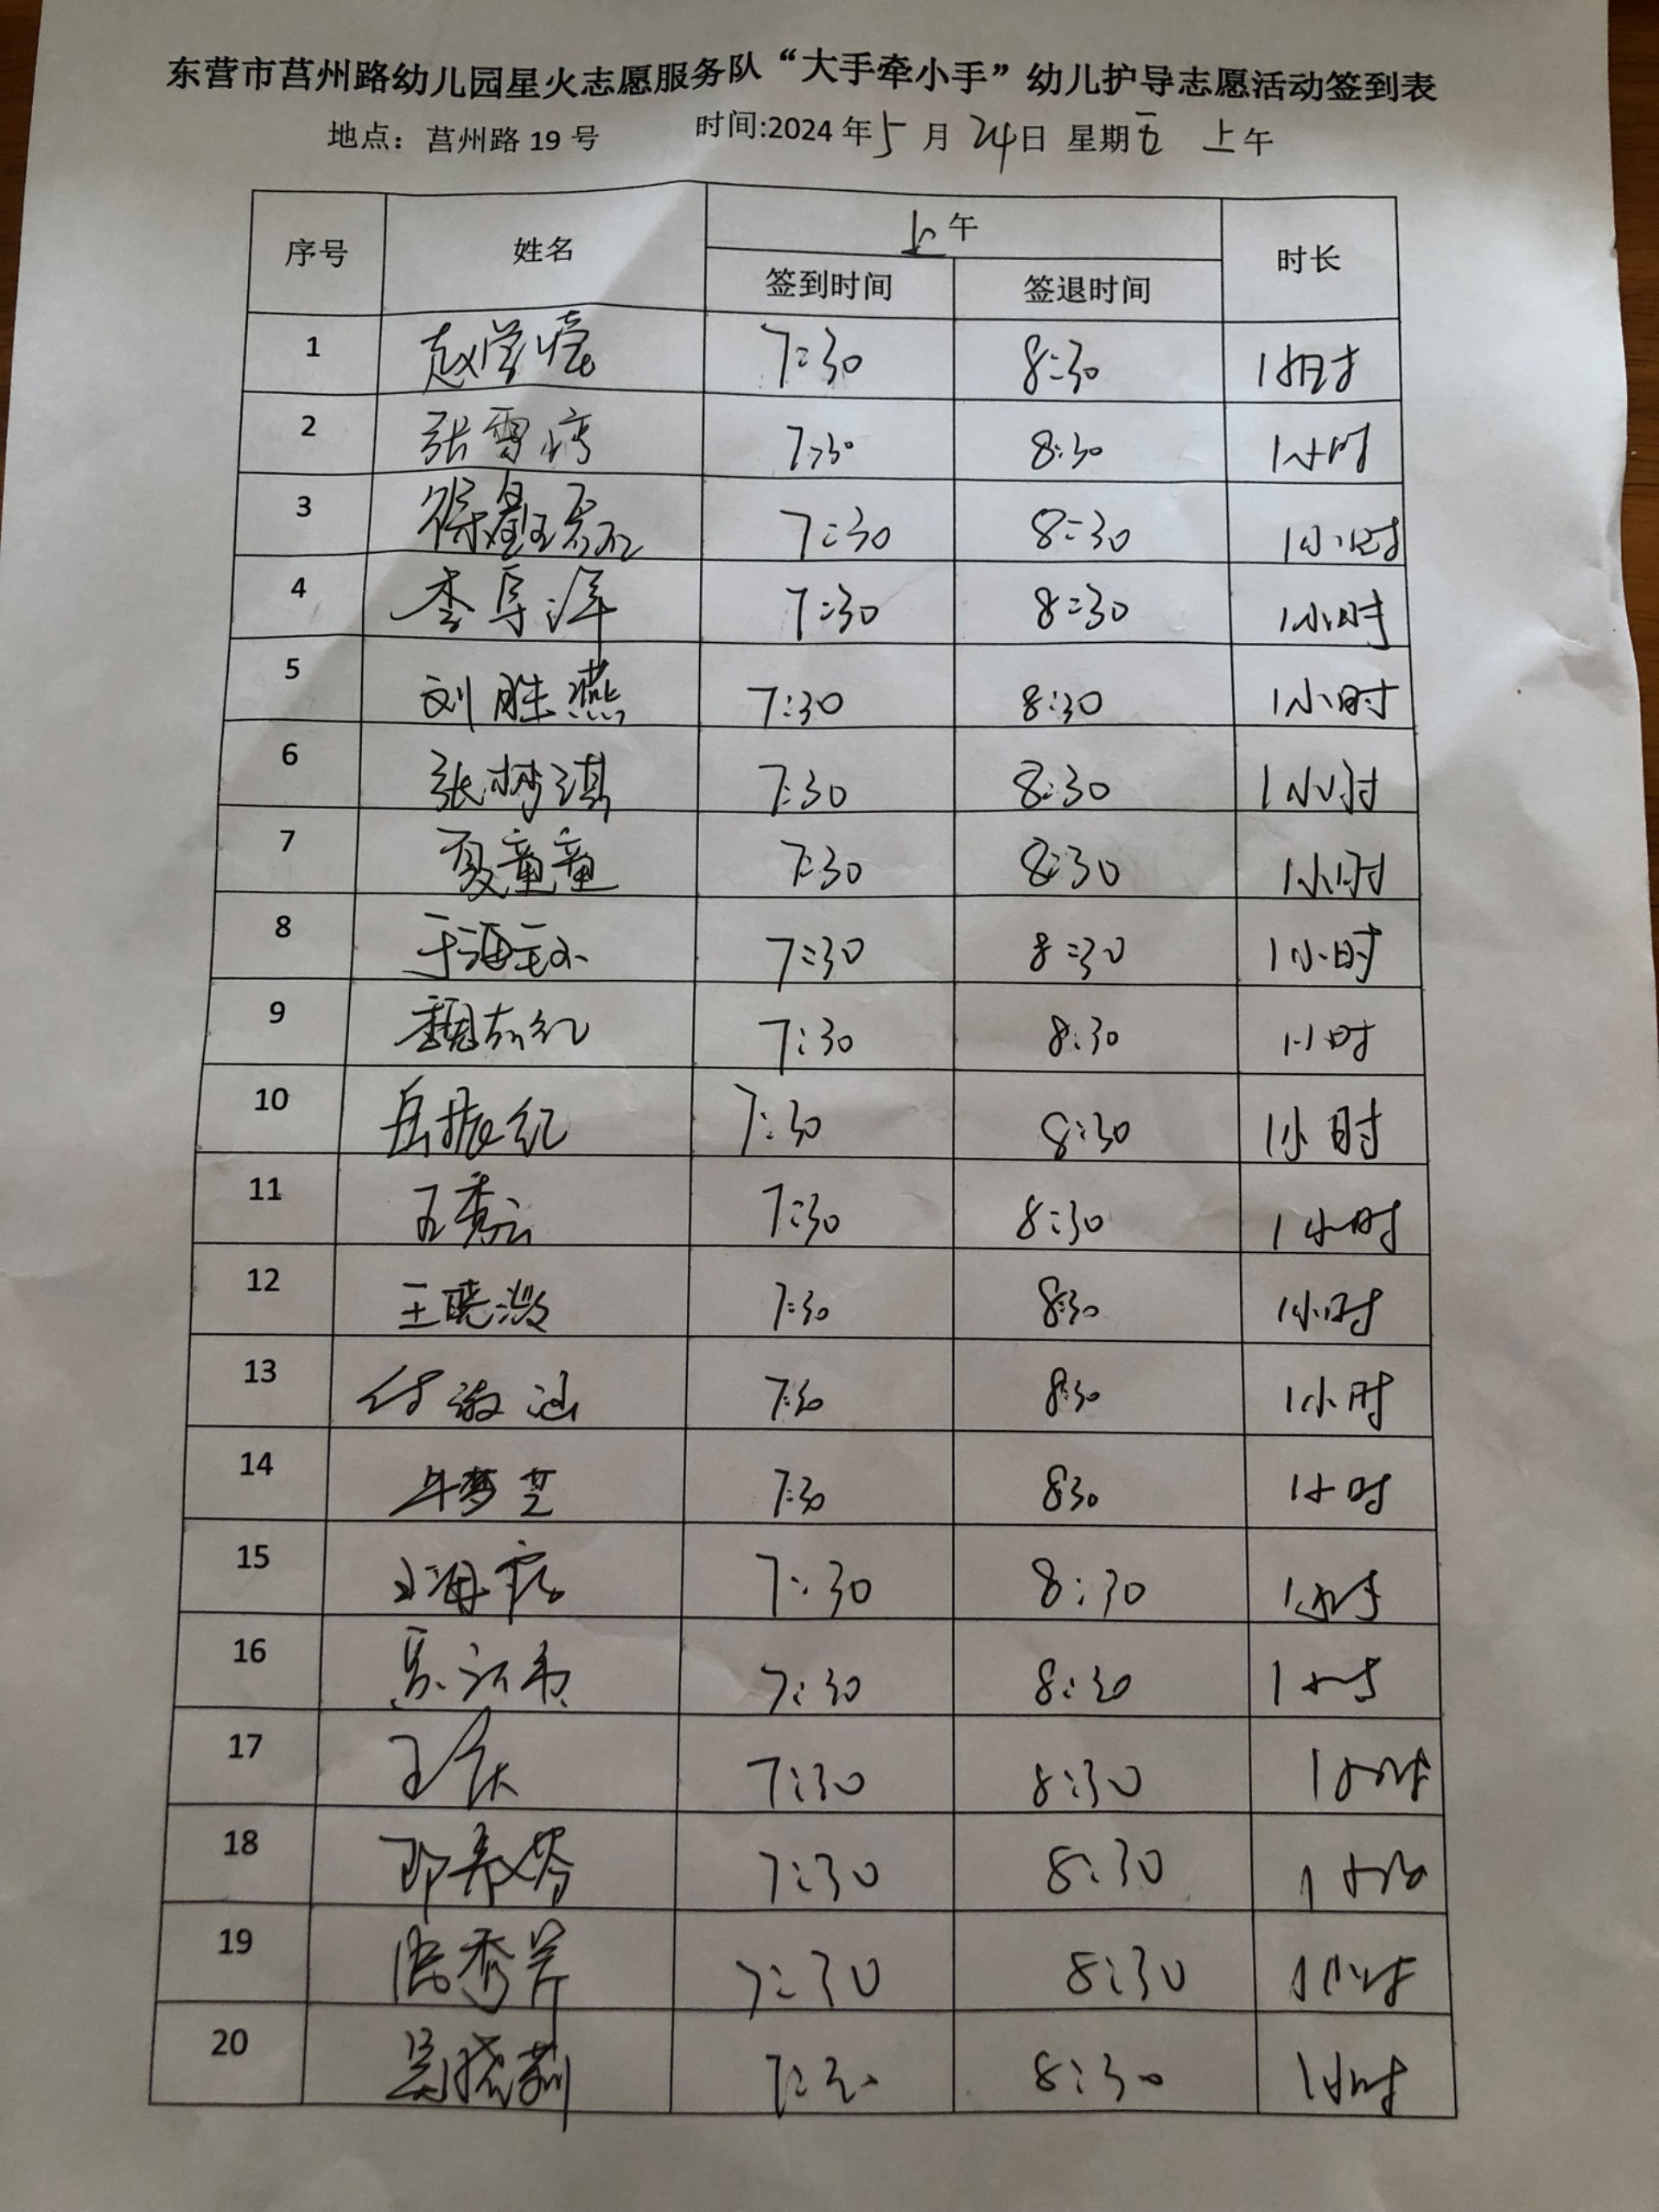 东营市莒州路幼儿园星火志愿服务队“大手牵小手”幼儿护导志愿活动签到表
地点：莒州路 19 号 时间:2024 年 5 月 24 日 星期五 上午
序号 姓名 上午 时长
签到时间 签退时间
1 7:30 8:30 1小时
2 张雪 7:30 8:30 1小时
3 徐 7:30 8:30 1小时
4 李 7:30 8:30 1小时
5 刘胜燕 7:30 8:30 1小时
6 张梦琪 7:30 8:30 1小时
7 夏童童 7:30 8:30 1小时
8 于海 7:30 8:30 1小时
9 魏 红 7:30 8:30 1小时
10 岳振红 7:30 8:30 1小时
11 王秀云 7:30 8:30 1小时
12 王晓 7:30 8:30 1小时
13 付 涵 7:30 8:30 1小时
14 7:30 8:30 1小时
15 王海 7:30 8:30 1小时
16 7:30 8:30 1小时
17 王 7:30 8:30 1小时
18 7:30 8:30 1小时
19 秀芹 7:30 8:30 1小时
20 吴晓莉 7:30 8:30 1小时